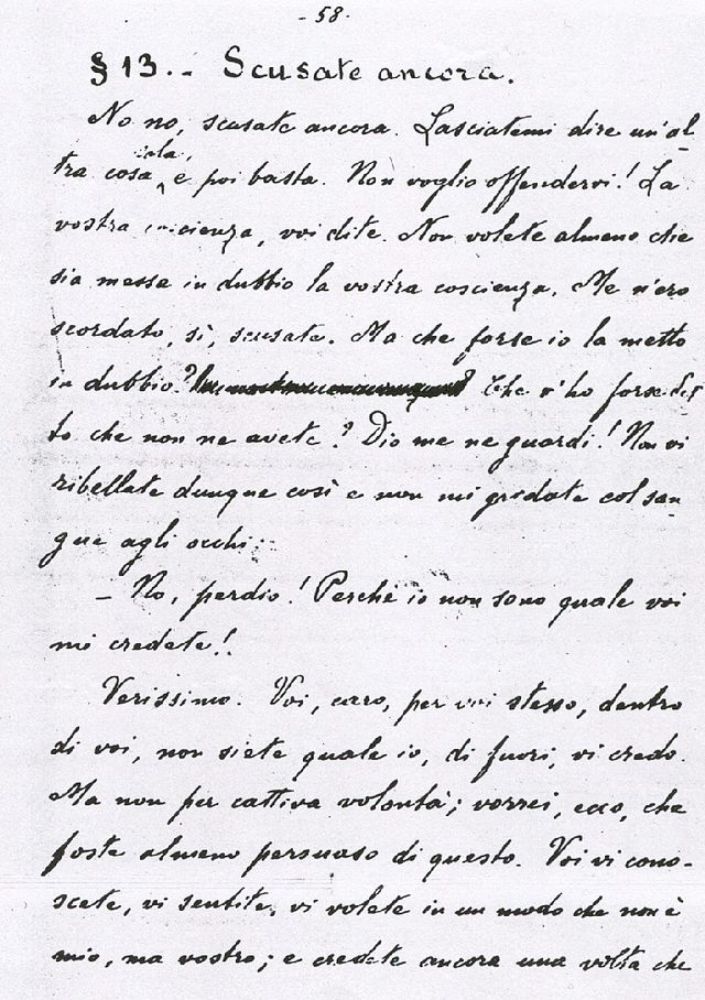 - 58.
§ 13. - Scusate ancora.
No no, scusate ancora. Lasciatemi dire un'al-
sola,
tra cosa e poi basta. Non voglio offendervi! La
vostra coscienza, voi dite. Non volete almeno che
sia messa in dubbio la vostra coscienza. Me n'ero
scordato, sì, scusate. Ma che forse io la metto
in dubbio? Che v'ho forse det
to che non ne avete? Dio me ne guardi! Non vi
ribellate dunque così e non mi gridate col san-
gue agli occhi:
- No, perdio! Perchè io non sono quale voi
mi credete!
Verissimo. Voi, caro, per voi stesso, dentro
di voi, non siete quale io, di fuori, vi credo.
Ma non per cattiva volontà; vorrei, ecco, che
foste almeno persuaso di questo. Voi vi cono-
scete, vi sentite, vi volete in un modo che non è
mio, ma vostro; e credete ancora una volta che